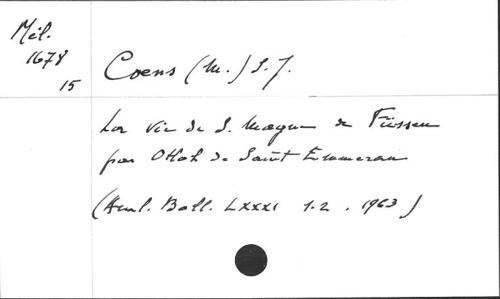 Mél.
1678
15
Coens (M.) S.J.
La vie de S. Magne de Füssen
par Otloh de Saint Emmeran
(Anal. Boll. LXXXI 1-2. 1963)